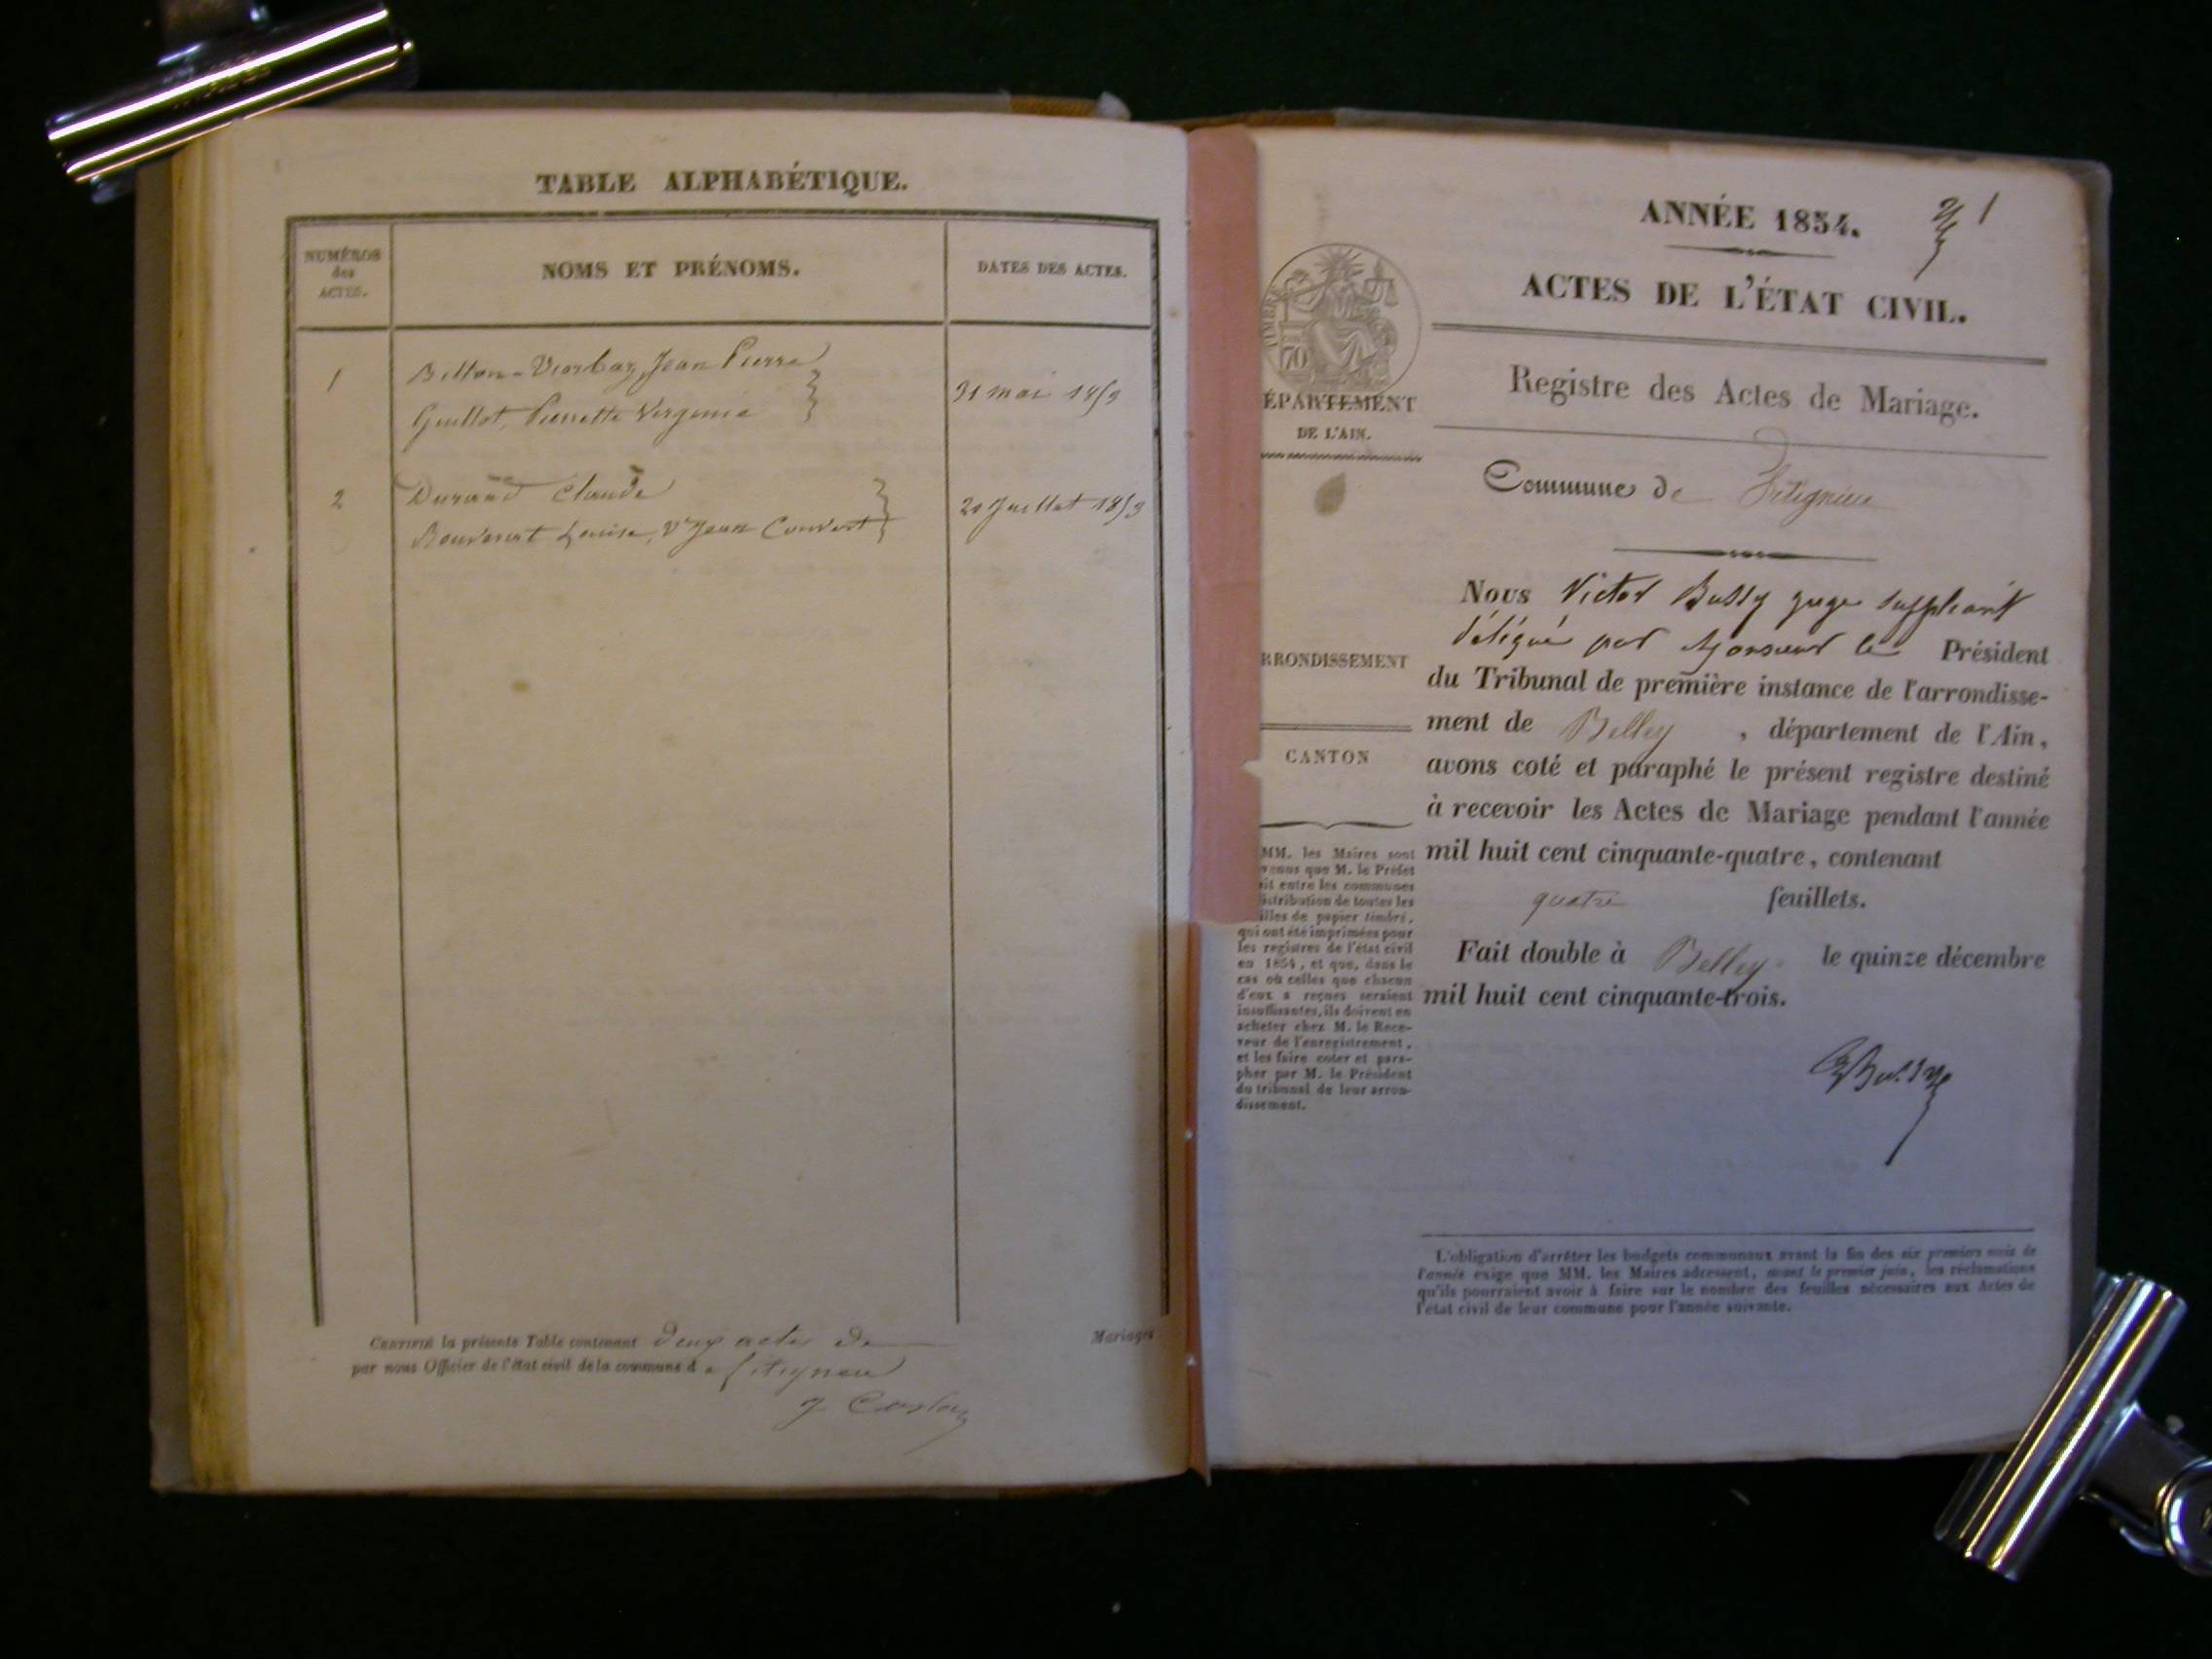 TABLE ALPHABÉTIQUE.
NUMÉROS
des
ACTES.
NOMS ET PRÉNOMS.
DATES DES ACTES.
1
Jean Pierre
Guillot, Pierrette Virginie
31 mai 1853
2
Durand Claude
Louise, Ve Jean Convert
20 Juillet 1853
CERTIFIÉ la présente Table contenant deux actes de
Mariages
par nous Officier de l'état civil de la commune d e
ANNÉE 1854.
1
ACTES DE L'ÉTAT CIVIL.
TIMBRE
70
ÉPARTEMENT
DE L'AIN.
Registre des Actes de Mariage.
Commune de
RRONDISSEMENT
CANTON
Nous Victor Bussy juge suppléant
délégué par Monsieur le Président
du Tribunal de première instance de l'arrondisse-
ment de Belley , département de l'Ain,
avons coté et paraphé le présent registre destiné
à recevoir les Actes de Mariage pendant l'année
mil huit cent cinquante-quatre, contenant
quatre feuillets.
Fait double à Belley le quinze décembre
mil huit cent cinquante-trois.
MM. les Maires sont
venus que M. le Préfet
it entre les communes
istribution de toutes les
illes de papier timbré,
qui ont été imprimées pour
les registres de l'état civil
en 1854, et que, dans le
cas où celles que chacun
d'eux a reçues seraient
insuffisantes, ils doivent en
acheter chez M. le Rece-
veur de l'enregistrement,
et les faire coter et para-
pher par M. le Président
du tribunal de leur arron-
dissement.
Bussy
L'obligation d'arrêter les budgets communaux avant la fin des six premiers mois de
l'année exige que MM. les Maires adressent, avant le premier juin, les réclamations
qu'ils pourraient avoir à faire sur le nombre des feuilles nécessaires aux Actes de
l'état civil de leur commune pour l'année suivante.